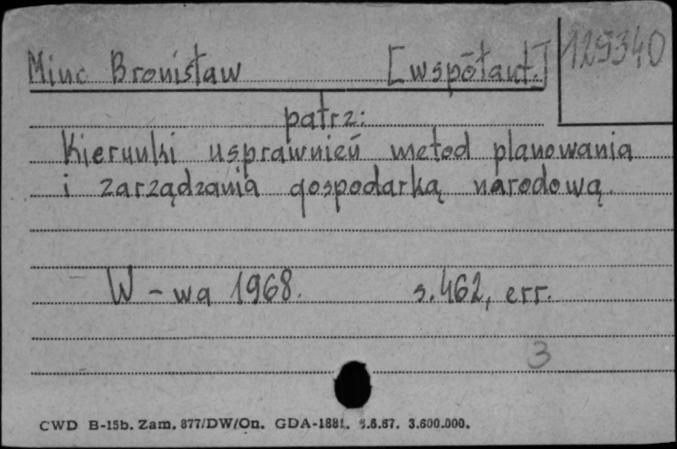 Minc Bronisław [współaut.] 129340
patrz:
Kierunki usprawnień metod planowania
i zarządzania gospodarką narodową.
W-wa 1968. s. 462, err.
3
CWD B-15b. Zam. 877/DW/On. GDA-1881. 5.6.67. 3.600.000.